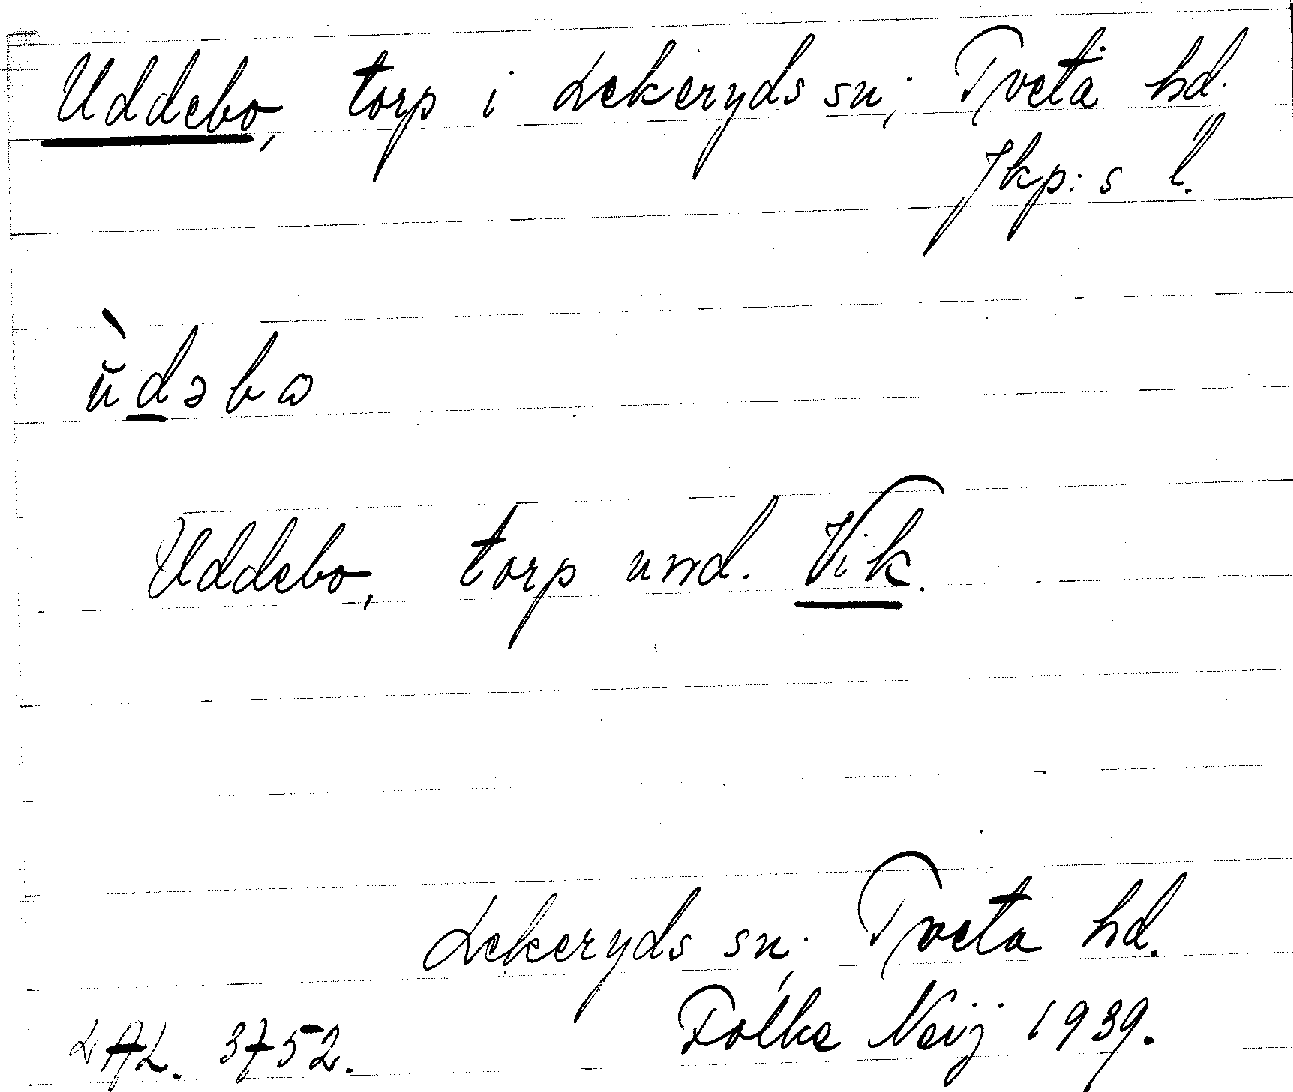 Uddebo, torp i Lekeryds sn; Tveta hd.
Jkp:s l.
ùdəbo
Uddebo, torp und. Vik.
Lekeryds sn; Tveta hd.
LAL. 3752. Folke Neij 1939.